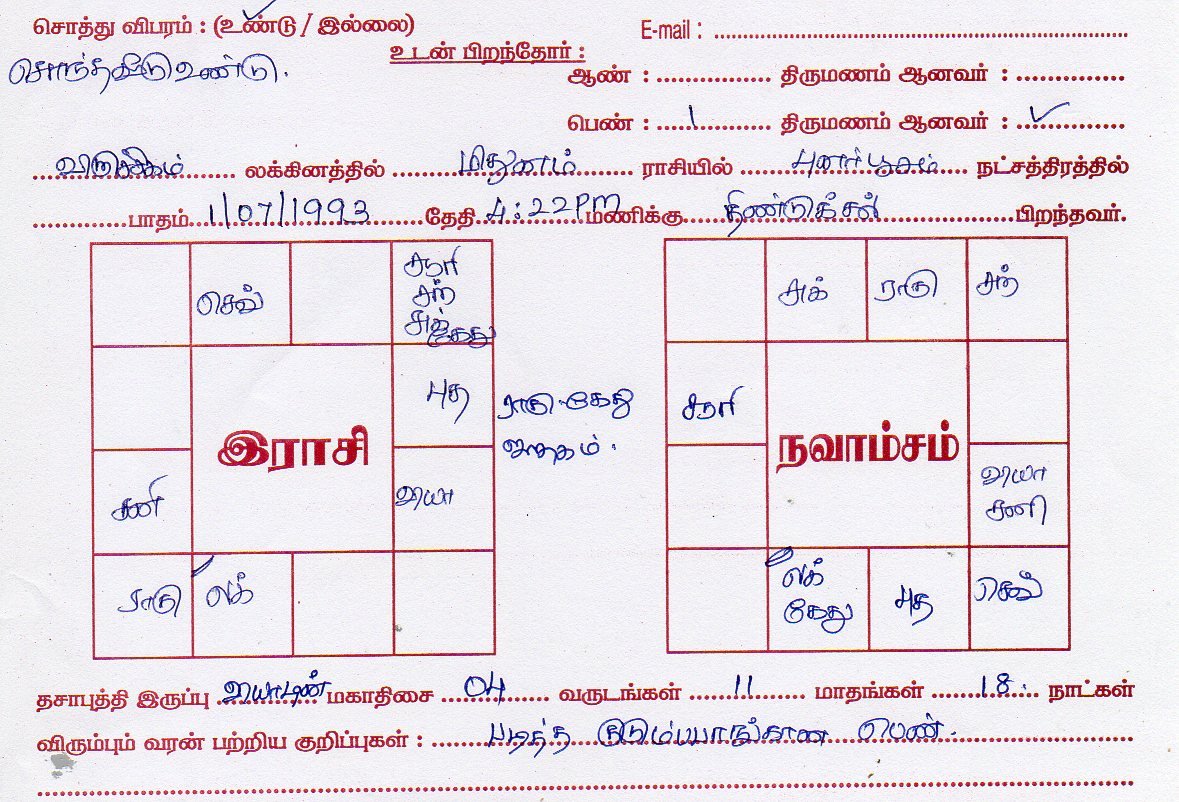 சொத்து விபரம் : (உண்டு / இல்லை)
E-mail :
சொந்தவீடு உண்டு.
உடன் பிறந்தோர் :
ஆண் : திருமணம் ஆனவர் :
பெண் : 1 திருமணம் ஆனவர் : ✓
விருச்சிகம் லக்கினத்தில் மிதுனம் ராசியில் புனர்பூசம் நட்சத்திரத்தில்
பாதம் 1/07/1993 தேதி 4:22PM மணிக்கு திண்டுக்கல் பிறந்தவர்.
செவ்
சூரி
சந்
கேது
புத
வியா
சனி
ராகு
லக்
இராசி
ராகு-கேது
ஜாதகம்.
சுக்
ராகு
சந்
சூரி
வியா
சனி
லக்
கேது
புத
செவ்
நவாம்சம்
தசாபுத்தி இருப்பு வியாழன் மகாதிசை 04 வருடங்கள் 11 மாதங்கள் 18. நாட்கள்
விரும்பும் வரன் பற்றிய குறிப்புகள் : படித்த குடும்பபாங்கான பெண்.